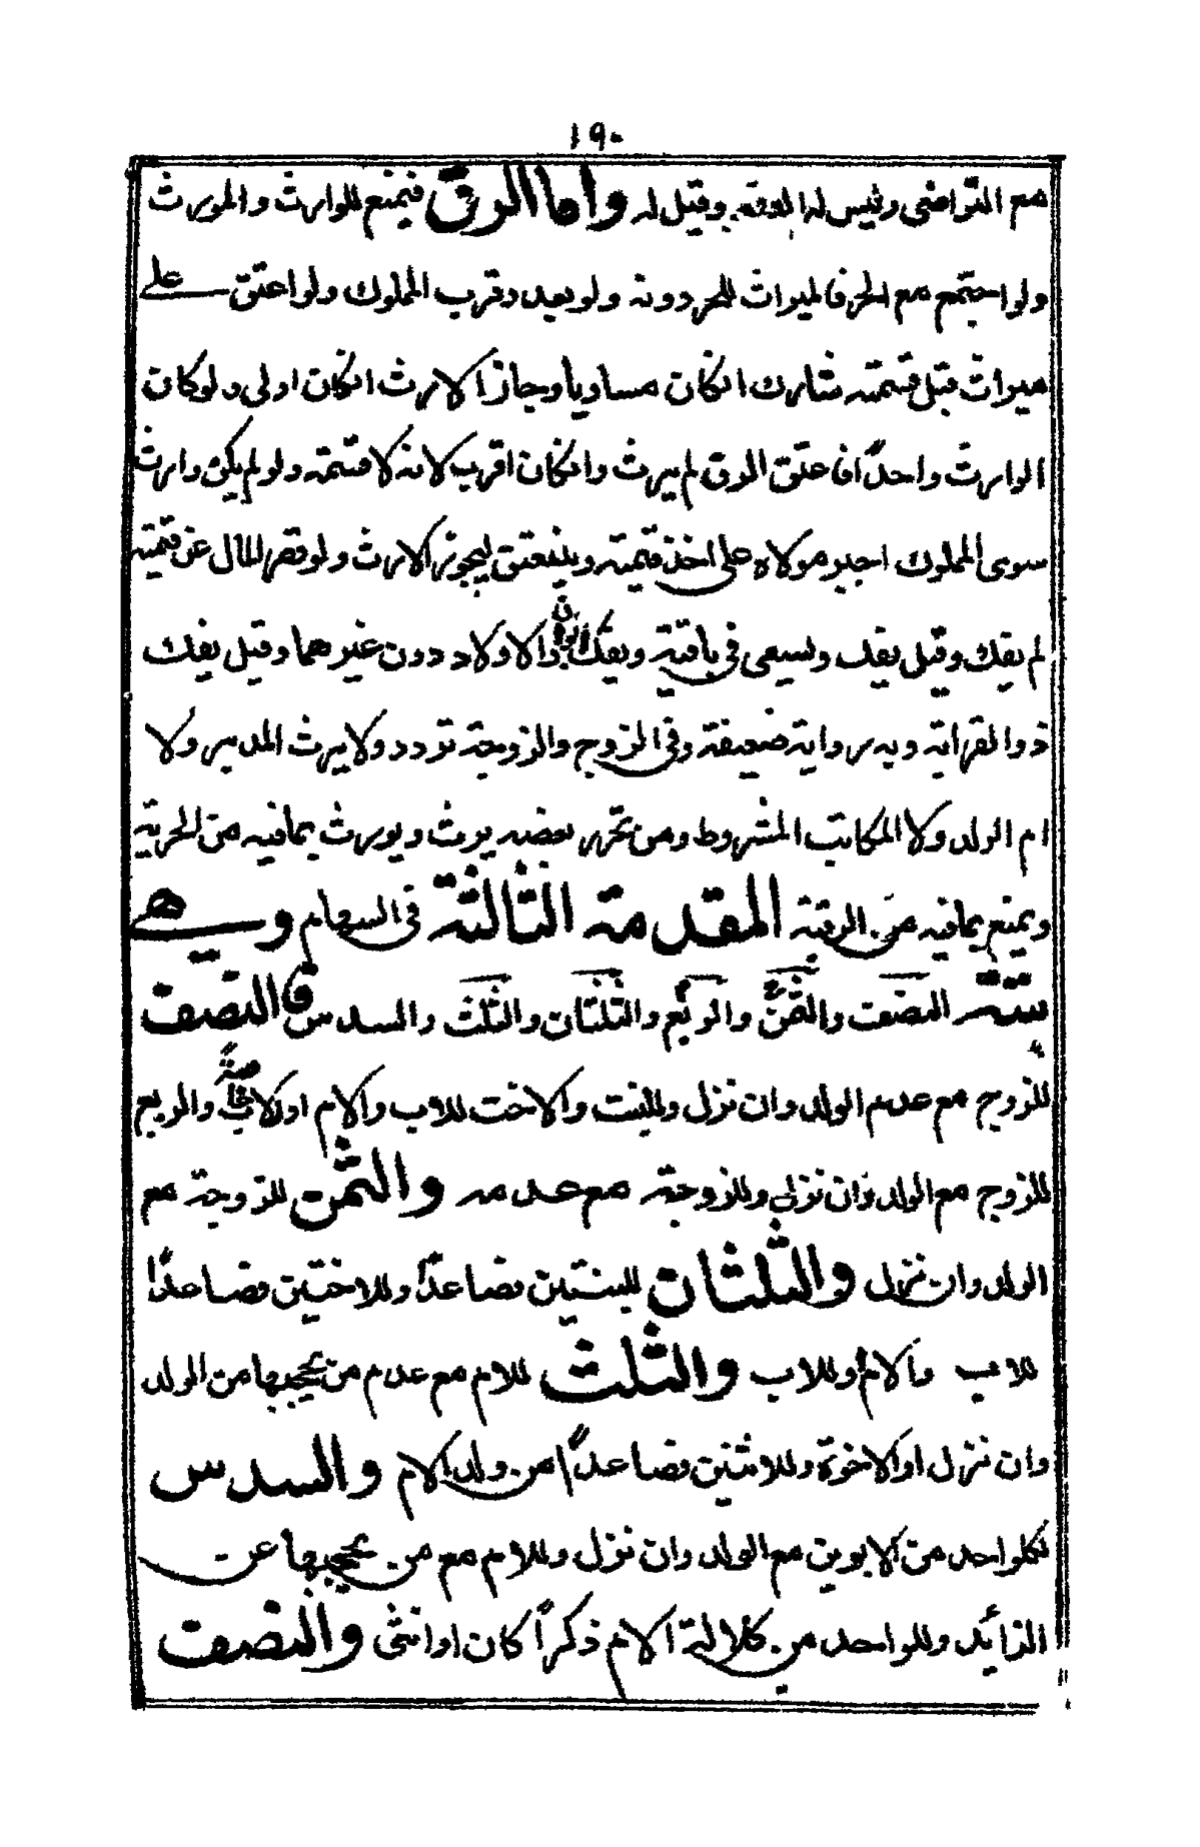 ١٩٠
مع التراضى وليس له الدية وقيل له واما الرق فيمنع للوارث والمورث
ولو اجتمع مع الحر فالميراث للحر دونه ولو بعد وقرب المملوك ولو اعتق على
ميراث قبل قسمته شارك انكان مساويا وحاز الارث انكان اولى ولو كان
الوارث واحدًا فاعتق الرق لم يرث وانكان اقرب لانه لا قسمته ولو لم يكن وارث
سوى المملوك اجبر مولاه على اخذ قيمته وينعتق ليجوز الارث ولو قصر المال عن قيمته
لم يفك وقيل يفك ويسعى فى باقيه ويفك الابوان والاولاد دون غيرهما وقيل يفك
ذوا القرابة وبه رواية ضعيفة وفى الزوج والزوجة تردد ولا يرث المدبر ولا
ام الولد ولا المكاتب المشروط ومن تحرر بعضه يرث ويورث بما فيه من الحرية
ويمنع بما فيه من الرقية المقدمة الثالثة فى السهام وهى
ستة النصف والثمن والربع والثلثان والثلث والسدس فالنصف
للزوج مع عدم الولد وان نزل وللبنت والاخت للاب والام او للاب خاصة والربع
للزوج مع الولد وان نزل وللزوجة مع عدمه والثمن للزوجة مع
الولد وان نزل والثلثان للبنتين فصاعدًا وللاختين فصاعدًا
للاب والام او للاب والثلث للام مع عدم من يحجبها من الولد
وان نزل او الاخوة وللاثنين فصاعدًا من ولد الام والسدس
لكلواحد من الابوين مع الولد وان نزل وللام مع من يحجبها عن
الزائد وللواحد من كلالة الام ذكرًا كان او انثى والنصف